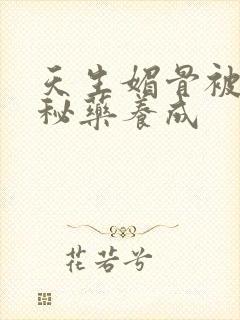 天生媚骨被
秘药养成
花若兮